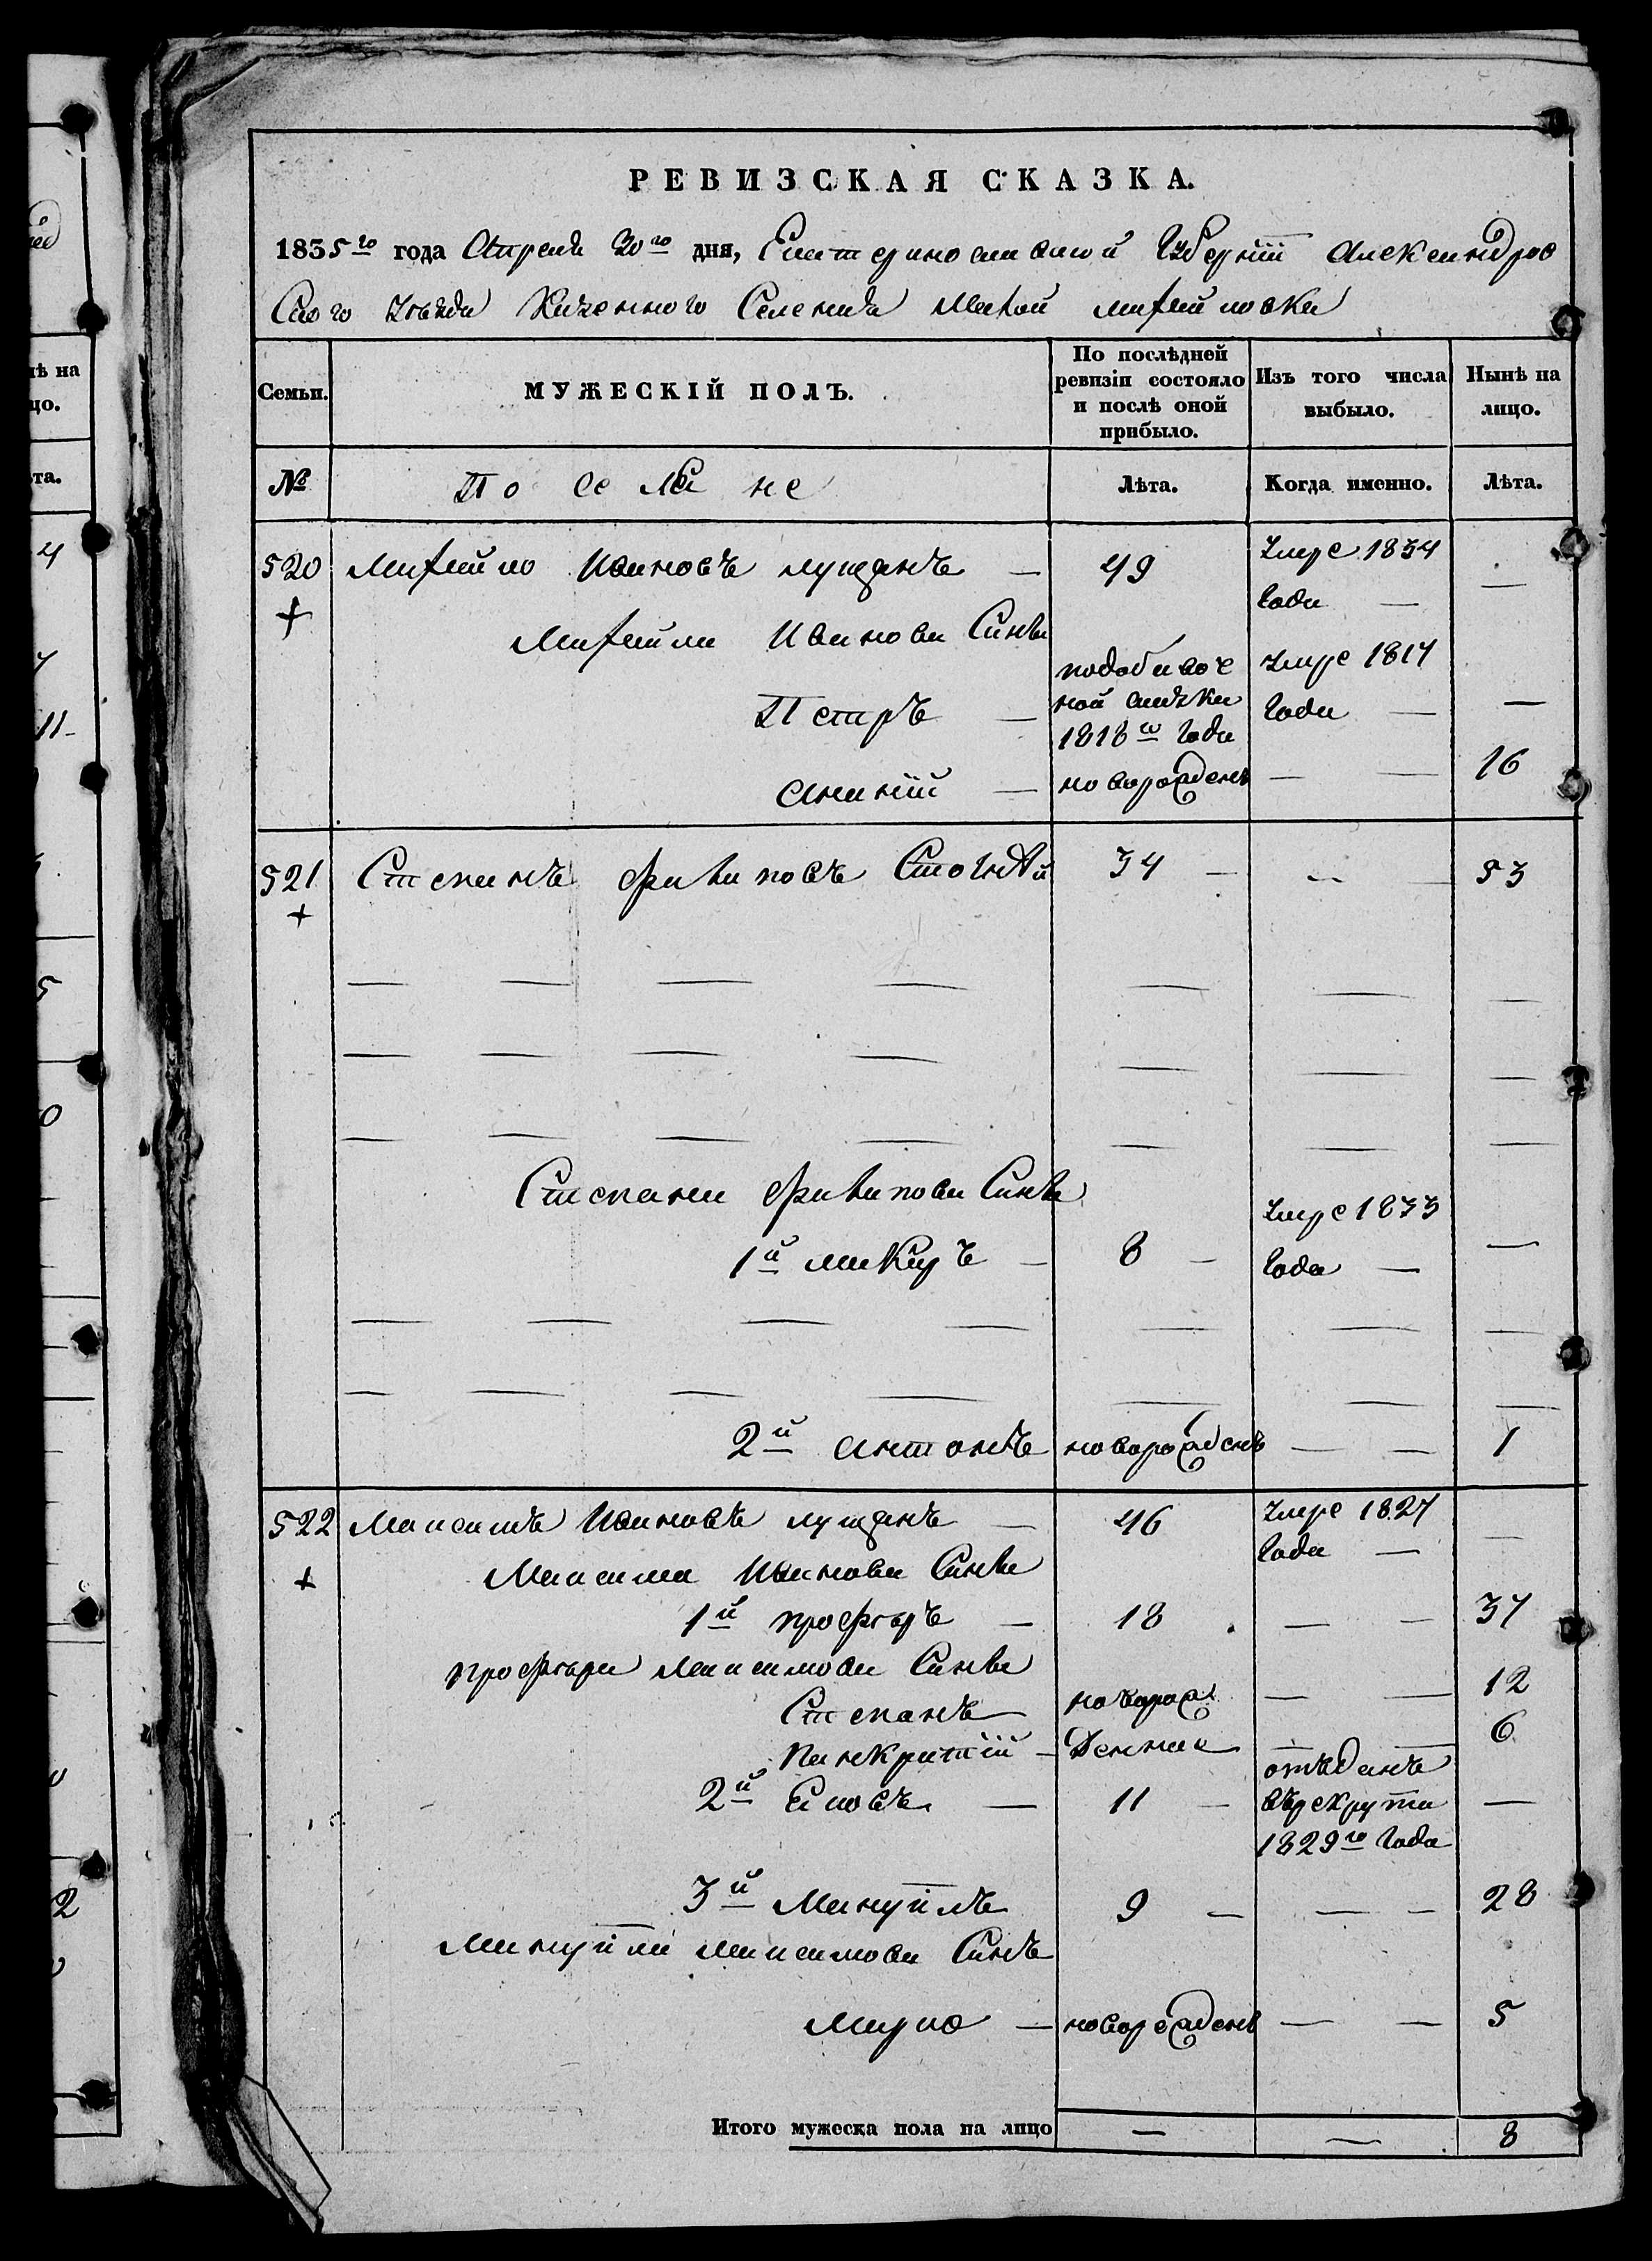 РЕВИЗСКАЯ СКАЗКА.
1835го года Апреля 30го дня, Екатеринославской Губернiи Александров
Ского Уезда Казенного Селения Малой михайловки
Семьи. МУЖЕСКIЙ ПОЛЪ. По послѣдней ревизiи состояло и послѣ оной прибыло. Изъ того числа выбыло. Нынѣ на лицо.
№ Поселяне Лѣта. Когда именно. Лѣта.
520 Михайло Ивановъ лущанъ — 49 Умре 1834 Года — —
Михайла Иванова Синьи
Петръ — 1818го Года Умре 1817 Года — —
Ананiй — новорожденъ — — 16
521 Степанъ Филиповъ 34 — — — 53
Степана Филипова Синьи
1й макаръ — 8 — Умре 1833 Года — —
2й антонъ новорожденъ — — 1
522 Максимъ Ивановъ лущанъ — 46 Умре 1827 Года — —
Максима Иванова Синьи
1й профиръ — 18 — — 37
профира Максимова Синьи
Степанъ новорож — — 12
панкратiй — Денние — — 6
2й — 11 — отъданъ върекрути 1829го Года —
3й Мануiлъ 9 — — — 28
Мануiла максимова Синъ
марко — новорожденъ — — 5
Итого мужеска пола на лицо — — 8
нѣ на
цо.
ѣта.
4
11
5
0
2